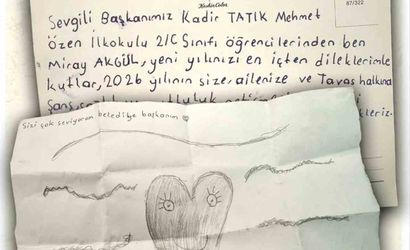 KadirCeba
87/322
Sevgili Başkanımız Kadir TATIK Mehmet
Özen İlkokulu 2/C Sınıfı öğrencilerinden ben
Miray AKGÜL, yeni yılınızı en içten dileklerimle
kutlar, 2026 yılının size, ailenize ve Tavas halkına
Şans,
Sizi çok seviyorum belediye başkanım